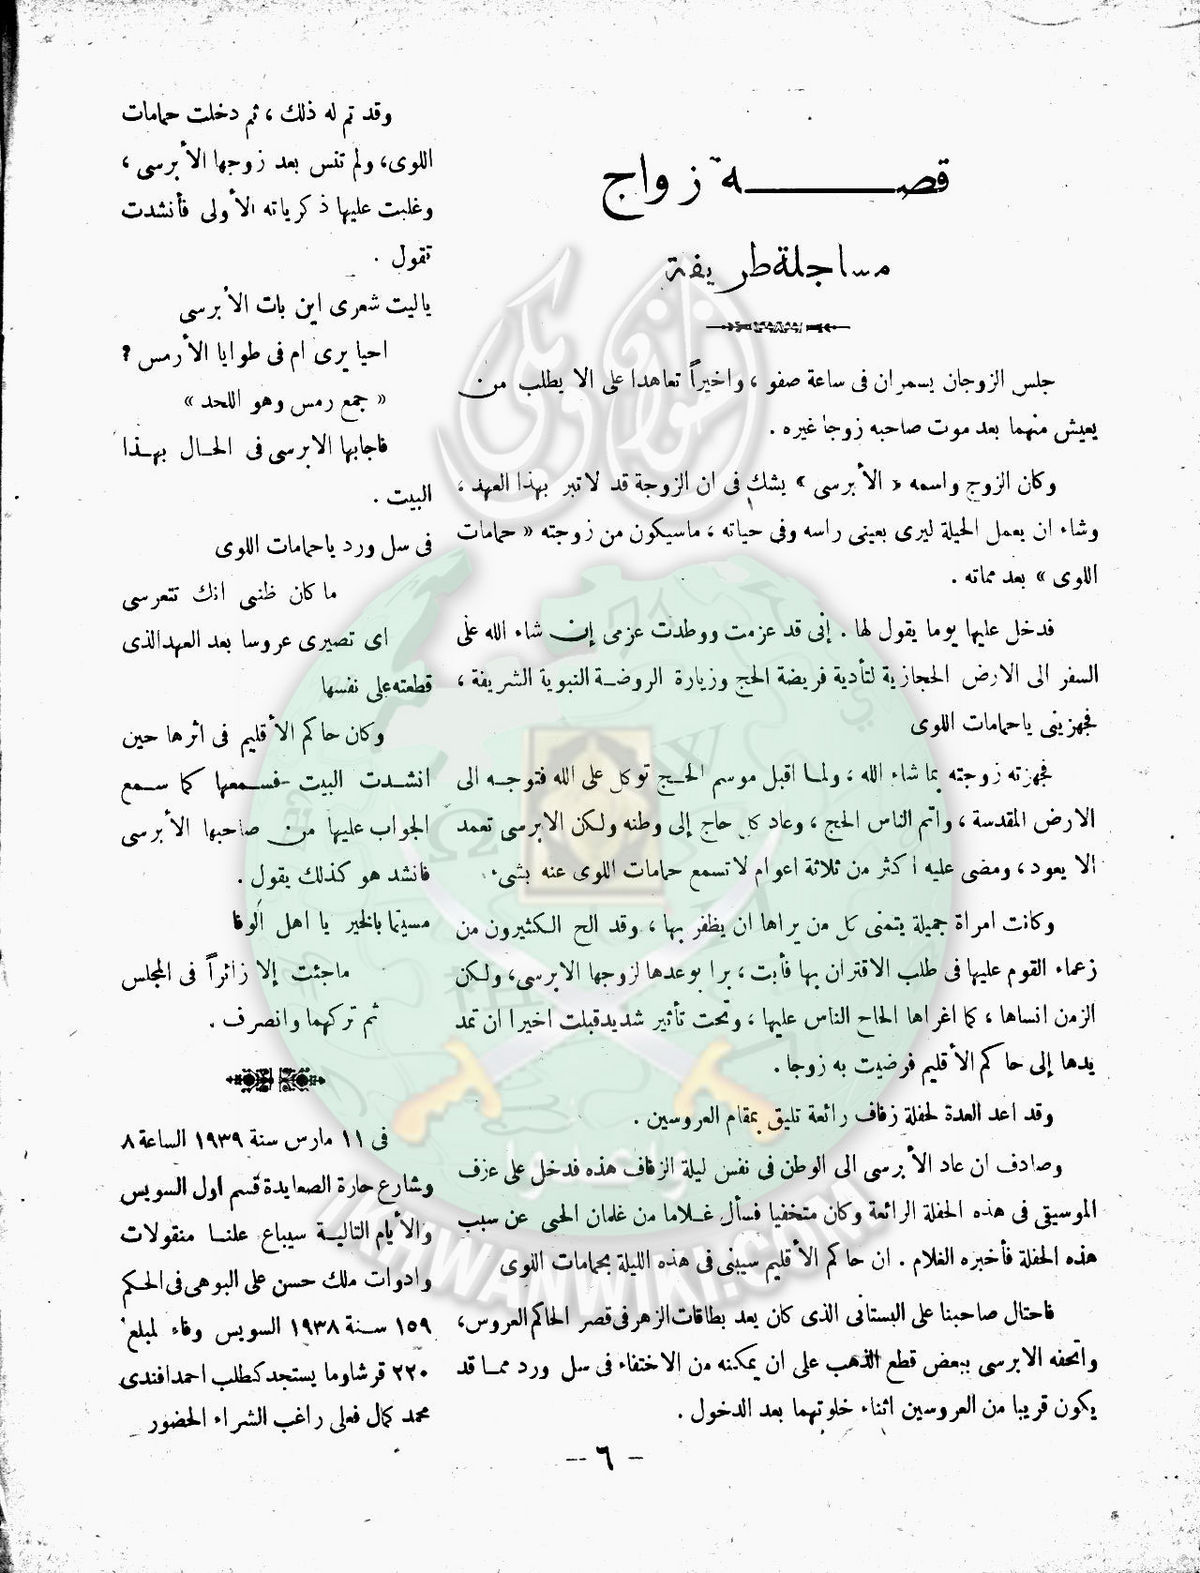 قصة زواج
مساجلة طريفة
جلس الزوجان يسمران فى ساعة صفو ، واخيراً تعاهدا على الا يطلب من
يعيش منهما بعد موت صاحبه زوجا غيره .
وكان الزوج واسمه « الأبرسى » يشك فى ان الزوجة قد لا تبر بهذا العهد ،
وشاء ان يعمل الحيلة ليرى بعينى راسه وفى حياته ، ماسيكون من زوجته « حمامات
اللوى » بعد مماته .
فدخل عليها يوما يقول لها . إنى قد عزمت ووطدت عزمى إن شاء الله على
السفر الى الارض الحجازية لتأدية فريضة الحج وزيارة الروضة النبوية الشريفة ،
فجهزينى ياحمامات اللوى
فجهزته زوجته بما شاء الله ، ولما اقبل موسم الحج توكل على الله فتوجه الى
الارض المقدسة ، واتم الناس الحج ، وعاد كل حاج إلى وطنه ولكن الابرسى تعمد
الا يعود ، ومضى عليه اكثر من ثلاثة اعوام لا تسمع حمامات اللوى عنه بشىء
وكانت امراة جميلة يتمنى كل من يراها ان يظفر بها ، وقد الح الكثيرون من
زعماء القوم عليها فى طلب الاقتران بها فأبت ، برا بوعدها لزوجها الابرسى، ولكن
الزمن انساها ، كما اغراها الحاح الناس عليها ، وتحت تأثير شديد قبلت اخيرا ان تمد
يدها إلى حاكم الأقليم فرضيت به زوجا .
وقد اعد العدة لحفلة زفاف رائعة تليق بمقام العروسين .
وصادف ان عاد الأبرسى الى الوطن فى نفس ليلة الزفاف هذه فدخل على عزف
الموسيقى فى هذه الحفلة الرائعة وكان متخفيا فسأل غلاما من غلمان الحى عن سبب
هذه الحفلة فأخبره الغلام . ان حاكم الأقليم سيبنى فى هذه الليلة بحمامات اللوى
فاحتال صاحبنا على البستانى الذى كان يعد بطاقات الزهر فى قصر الحاكم العروس،
واتحفه الابرسى ببعض قطع الذهب على ان يمكنه من الاختفاء فى سل ورد مما قد
يكون قريبا من العروسين اثناء خلوتهما بعد الدخول .
وقد تم له ذلك ، ثم دخلت حمامات
اللوى، ولم تنس بعد زوجها الأبرسى ،
وغلبت عليها ذكرياته الأولى فأنشدت
تقول .
ياليت شعرى اين بات الأبرسى
احيا يرى ام فى طوايا الأرمس ؟
« جمع رمس وهو اللحد »
فاجابها الابرسى فى الحال بهذا
البيت .
فى سل ورد ياحمامات اللوى
ما كان ظنى انك تتعرسى
اى تصيرى عروسا بعد العهد الذى
قطعته على نفسها
وكان حاكم الأقليم فى اثرها حين
انشدت البيت فسمعها كما سمع
الجواب عليها من صاحبها الأبرسى
فانشد هو كذلك يقول .
مسيتما بالخير يا اهل الوفا
ماجئت إلا زائراً فى المجلس
ثم تركهما وانصرف .
فى ١١ مارس سنة ١٩٣٩ الساعة ٨
وشارع حارة الصعايدة قسم اول السويس
والأيام التالية سيباع علنا منقولات
وادوات ملك حسن على البوهى فى الحكم
١٥٩ سنة ١٩٣٨ السويس وفاء لمبلغ
٢٢٠ قرش وما يستجد كطلب احمد افندى
محمد كمال فعلى راغب الشراء الحضور
— ٦ —
IKHWANWIKI.COM